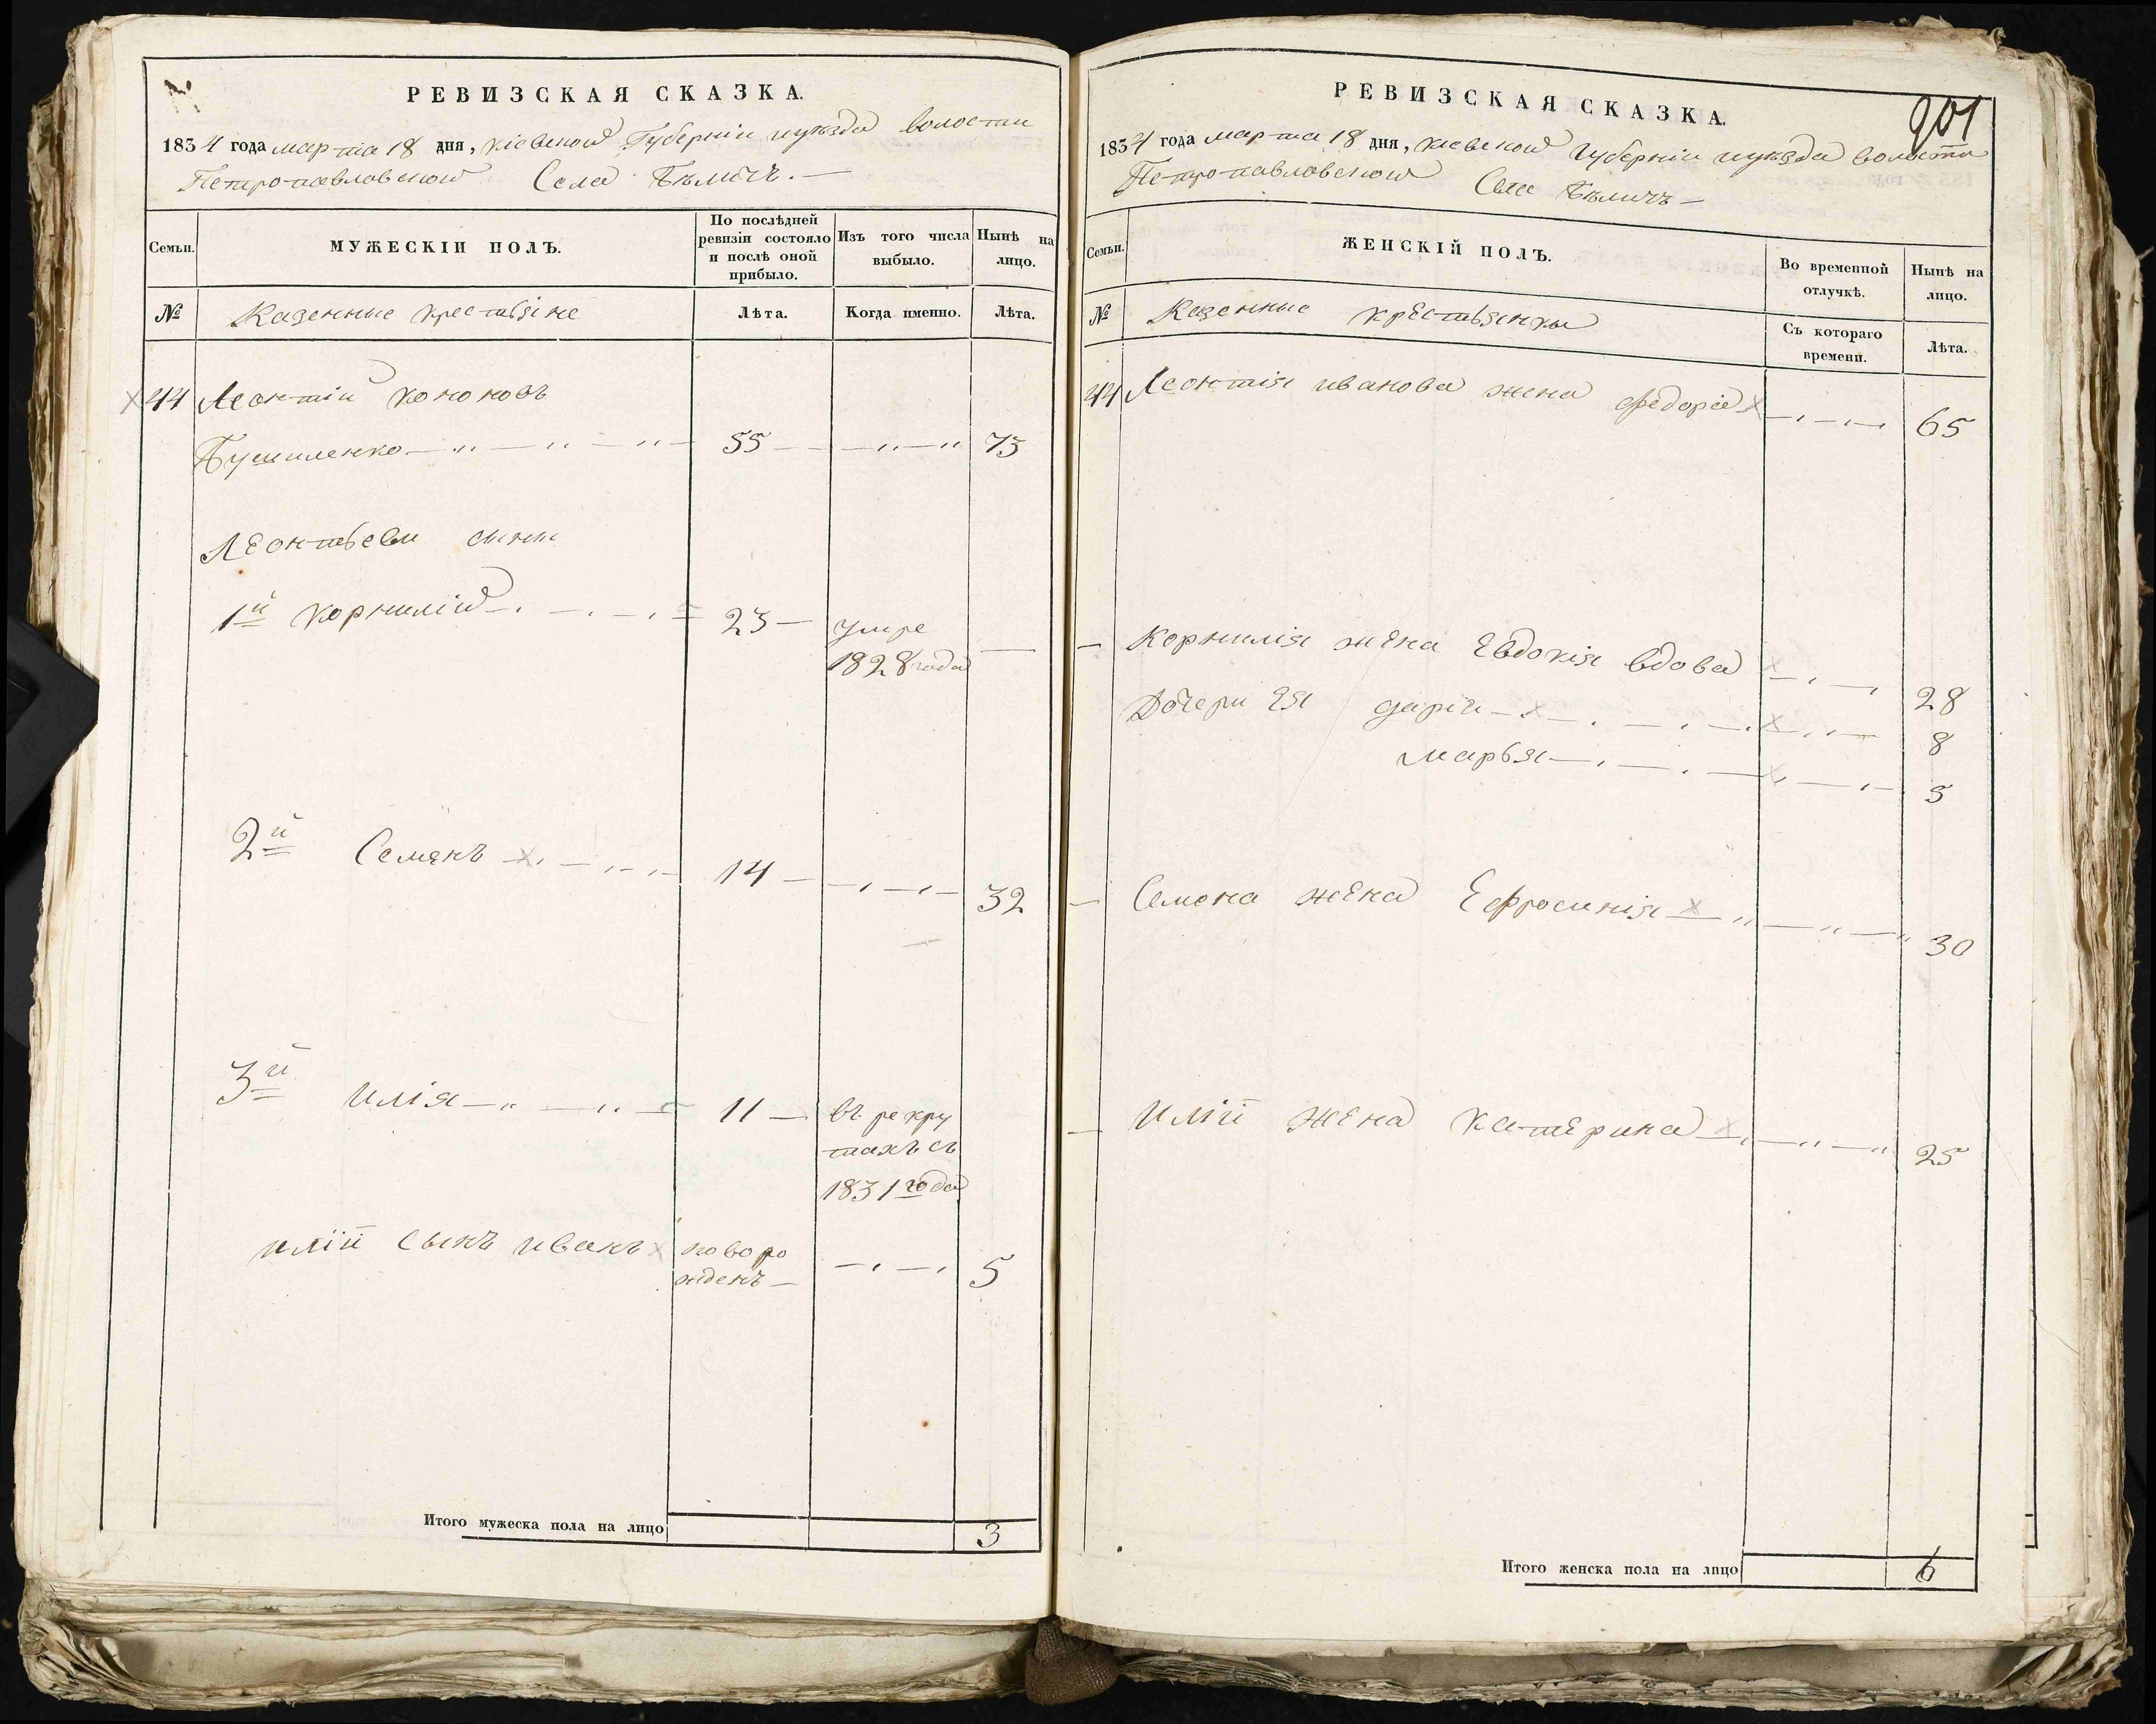 РЕВИЗСКАЯ СКАЗКА.
1834 года марта 18 дня, кіевской Губерніи и уѣзда волости
Петропавловской Села Бѣличъ. —
Семьи.
МУЖЕСКІИ ПОЛЪ.
По послѣдней ревизіи состояло и послѣ оной прибыло.
Изъ того числа выбыло.
Нынѣ на лицо.
№ Казенные крестьяне
Лѣта.
Когда именно.
Лѣта.
44 Леонтій кононовъ
55 — 73
Леонтьевы сыны
1й корнилій — 23 — умре
1828 года —
2й Семенъ — 14 — 32
3й илія — 11 — въ рекру
тахъ съ
1831 года
иліи сынъ иванъ новоро
жденъ — 5
Итого мужеска пола на лицо 3
РЕВИЗСКАЯ СКАЗКА.
201
1834 года марта 18 дня, кіевской губерніи и уѣзда волости
Петропавловской Села Бѣличъ —
Семьи.
ЖЕНСКІЙ ПОЛЪ.
Во временной отлучкѣ.
Нынѣ на лицо.
№ Казенные крестьянки
Съ котораго времени.
Лѣта.
44 Леонтія иванова жена федорія — 65
— Корнилія жена Евдокія вдова — 28
Дочери Ея дарія — 8
марья — 5
— Семена жена Ефросинія — 30
— иліи жена катерина — 25
Итого женска пола на лицо 6